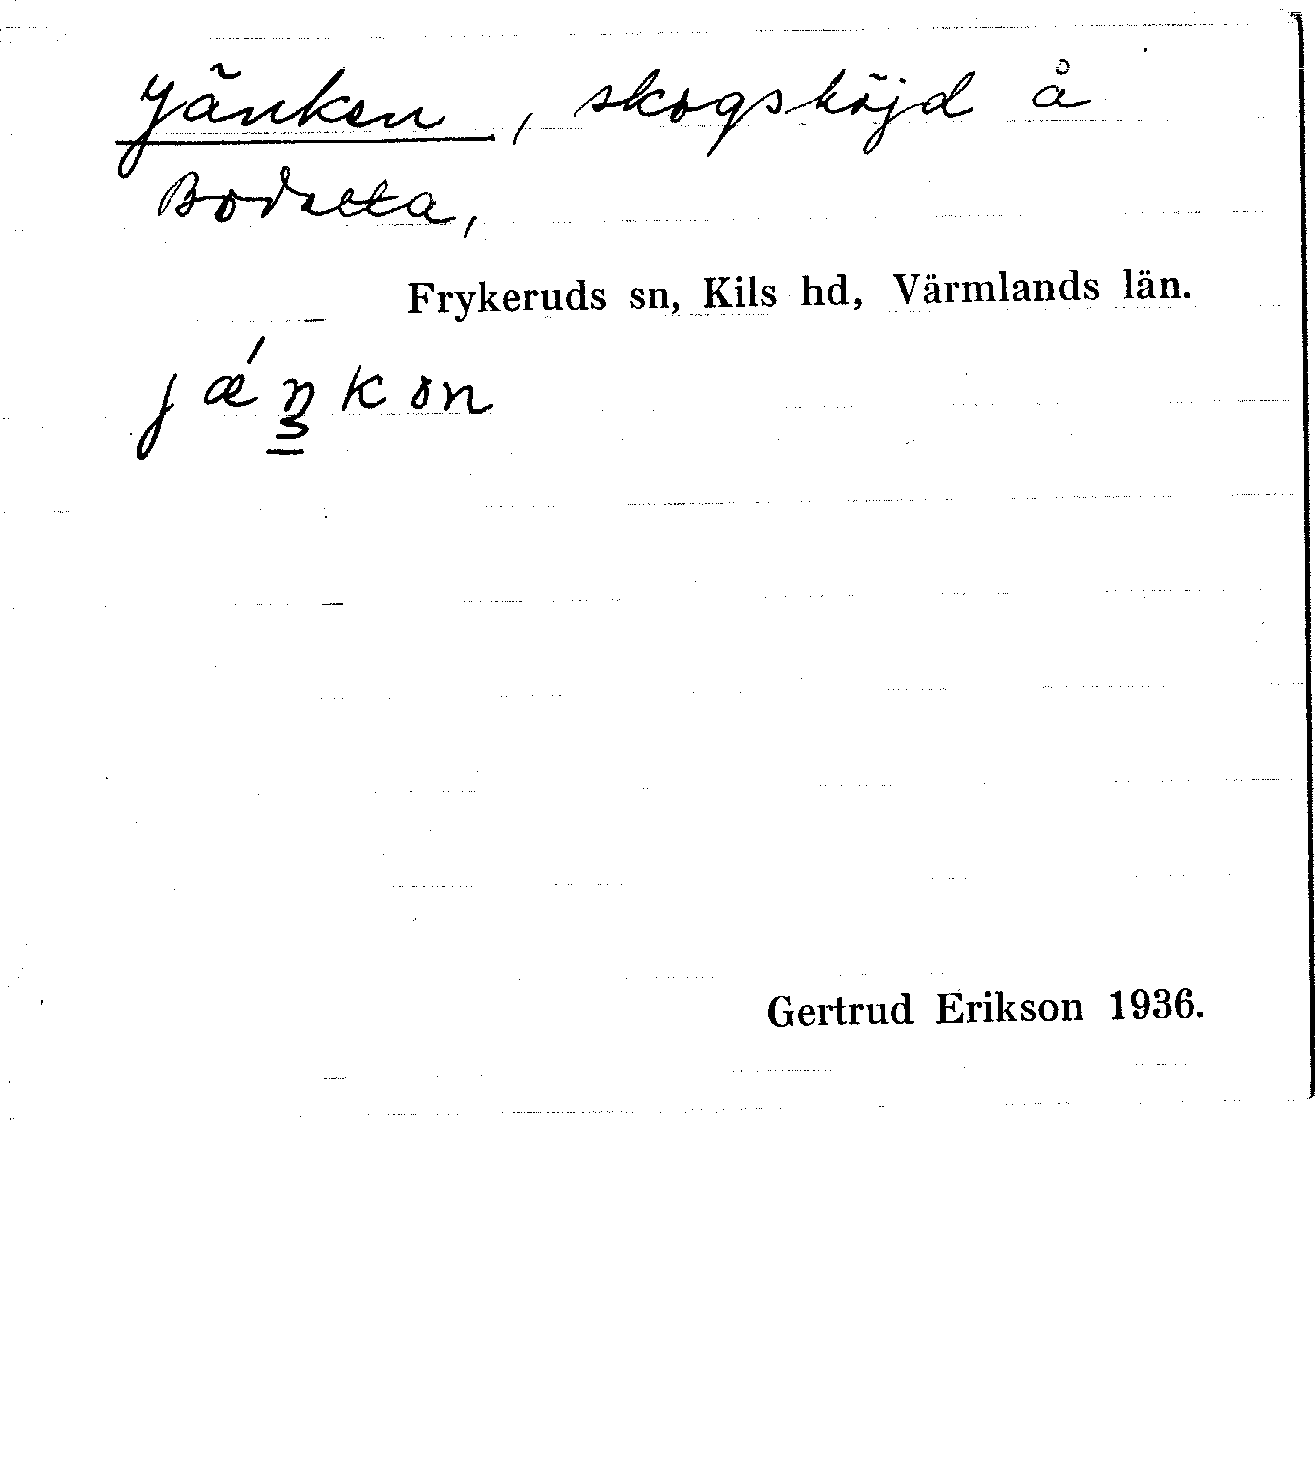 Jänken, skogshöjd å
Bodetta,
Frykeruds sn, Kils hd, Värmlands län.
jæ´ŋkən
Gertrud Erikson 1936.